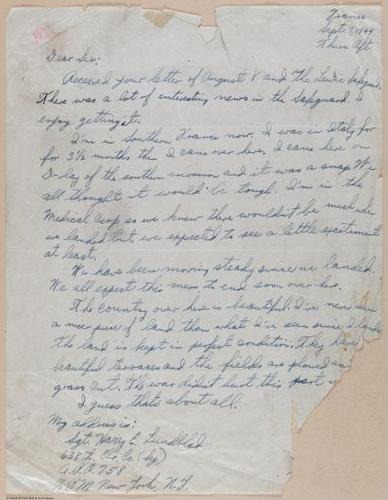 France
Sept. 7, 1944
Thurs. Aft.
Dear Sir:
Received your letter of August 8 and the Lewis Safeguard.
There was a lot of interesting news in the Safeguard. I
enjoy getting it.
I'm in Southern France now. I was in Italy for
for 3½ months then I came over here. I came here on
D-day of the southern invasion and it was a snap. We
all thought it would be tough. I'm in the
Medical Corp so we knew there wouldn't be much when
we landed but we expected to see a little excitement
at least.
We have been moving steady since we landed.
We all expect this mess to end soon over here.
The country over here is beautiful. I've never seen
a nicer piece of land than what I've seen since I landed
the land is kept in perfect condition. They have
beautiful terraces and the fields are plowed and
grass cut. The war didn't hurt this part
I guess that's about all.
My address is:
Sgt. Harry E. Lundblad
638th Co.
A.P.O. 758
P.M. New York, N.Y.